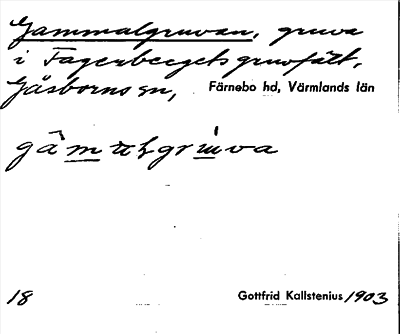 Gammalgruvan, gruva
i Fagerbergets gruvfält,
Gåsborns sn, Färnebo hd, Värmlands län
18 Gottfrid Kallstenius 1903